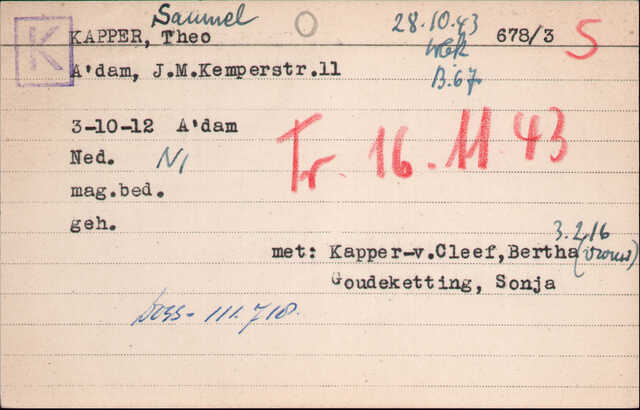 Saumel
KAPPER, Theo
28.10.43
678/3
S
K
WeK
A'dam, J.M.Kemperstr.11
B.67
3-10-12 A'dam
Tr. 16.11.43
Ned. NI
mag.bed.
geh.
3.2.16
met: Kapper-v.Cleef,Bertha (vrouw)
Goudeketting, Sonja
Doss- 111.710.